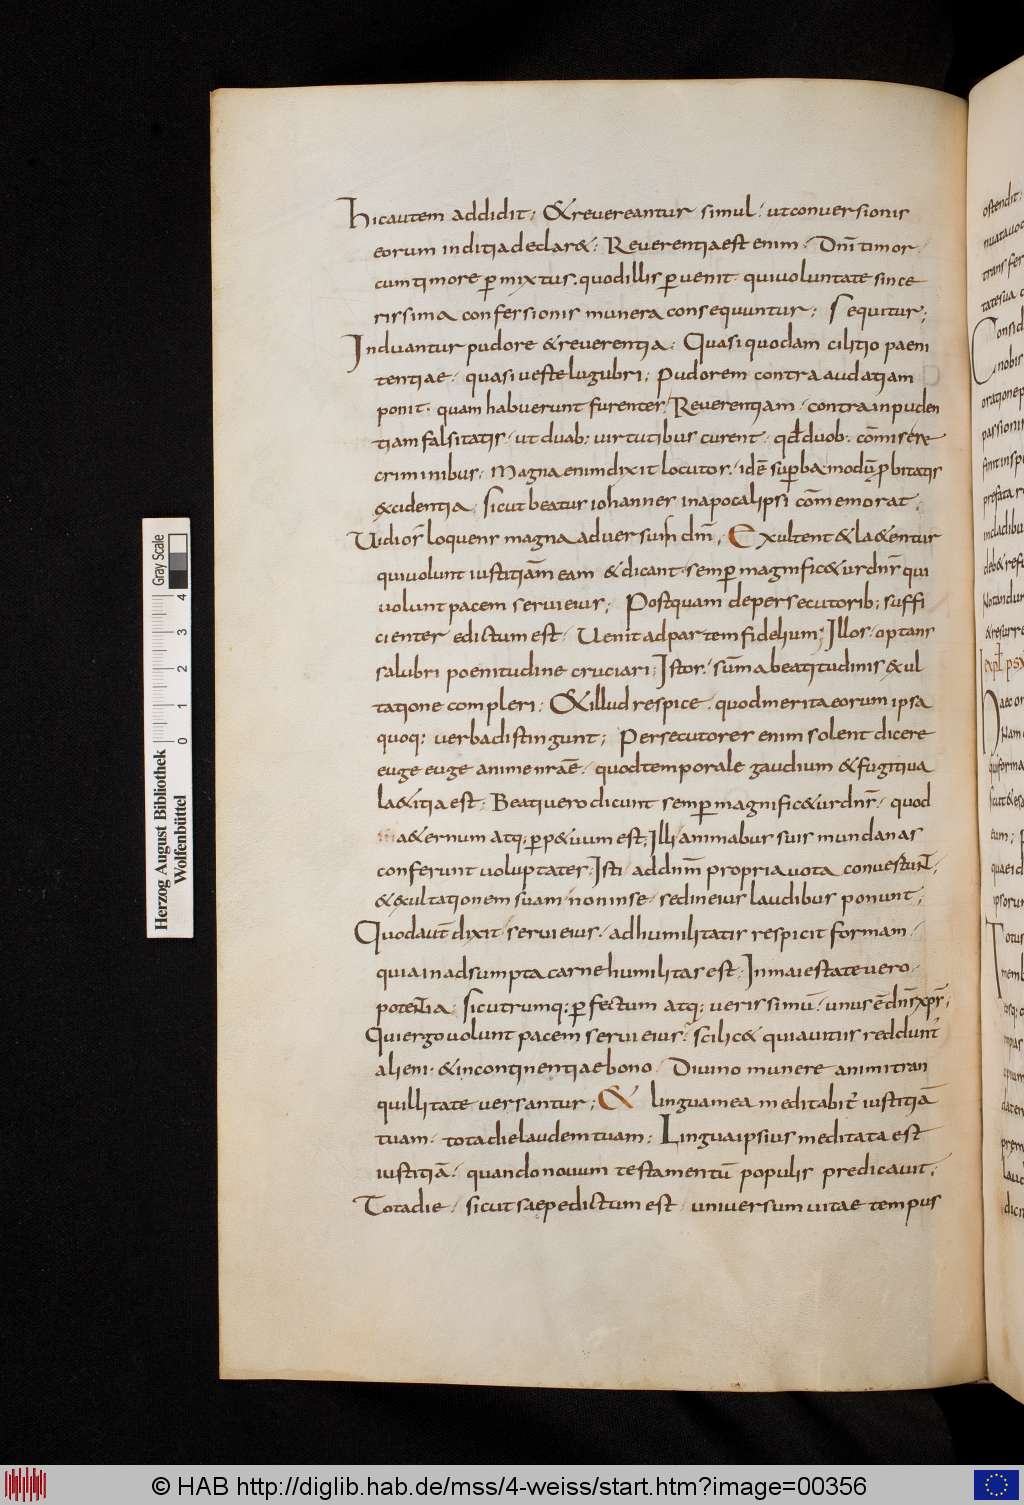 hic autem addidit; & reuereantur simul; ut conuersionis
eorum inditia declar&; Reuerentia est enim. Dnī timor
cum timore p̄mixtus. quod illis p̄uenit. qui uoluntate since
rissima confessionis munera consequuntur; Sequitur;
Induantur pudore & reuerentia; Quasi quodam cilitio paeni
tentiae. quasi ueste lugubri; Pudorem contra audatiam
ponit. quam habuerunt furenter. Reuerentiam contra inpuden
tiam falsitatis. ut duab; uirtutibus curent. qđ duob; cōmisere
criminibus; Magna enim dixit locutor. idē sup̄ba modū p̱bitatis
excidentia; Sicut beatus iohannes in apocalipsi cōmemorat;
Uidi os loquens magna aduersum dnm̄; Exultent & la&entur
qui uolunt iustitiam eam & dicant semp̄ magnific&ur dnr̄ qui
uolunt pacem serui eius; Postquam de persecutorib; suffi
cienter edictum est. Uenit ad partem fidelium; Illos optans
salubri poenitudine cruciari; Istos sūma beatitudinis exul
tatione compleri; & illud respice. quod merita eorum ipsa
quoq; uerba distingunt; Persecutores enim solent dicere
euge euge anime nrāe. quod temporale gaudium & fugitiua
la&itia est; Beati uero dicunt semp̄ magnific&ur dns̄. quod
a&ernum atq; p̄p&uum est; Illi animabus suis mundanas
conferunt uoluptates; Isti ad dnm̄ propria uota conuestunt;
& exultationem suam non in se sed in eius laudibus ponunt;
Quod aut̄ dixit serui eius. ad humilitatis respicit formam.
quia in adsumpta carne humilitas est; In maiestate uero
potentia; Sicut rumq; p̄fectum atq; uerissimū. unus ē dnīs xp̄s;
Qui ergo uolunt pacem serui eius. scilic& qui a uitiis reddunt'
alieni. & incontinentiae bono. Diuino munere animi tran
quillitate uersantur; & lingua mea meditabit' iustitiā
tuam. tota die laudem tuam; Lingua ipsius meditata est
iustitiā. quando nouum testamentū populis predicauit;
Tota die. sicut saepe dictum est. uniuersum uitae tempus
ostendit
oratione
passionis
expl ps
quiforma
eum;
quae id
ipsorum
Totus
memb
Herzog August Bibliothek
Wolfenbüttel
0 1 2 3 4
Gray Scale
© HAB http://diglib.hab.de/mss/4-weiss/start.htm?image=00356